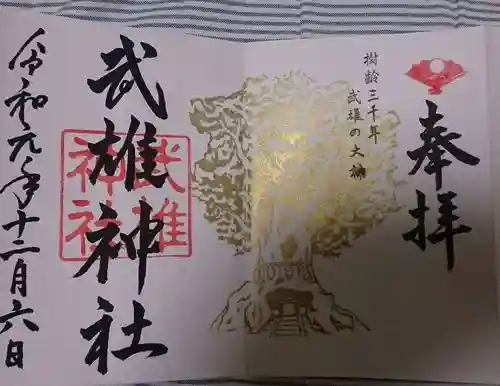 奉拝
樹齢三千年
武雄の大楠
武雄神社
武雄
神社
令和元年十二月六日